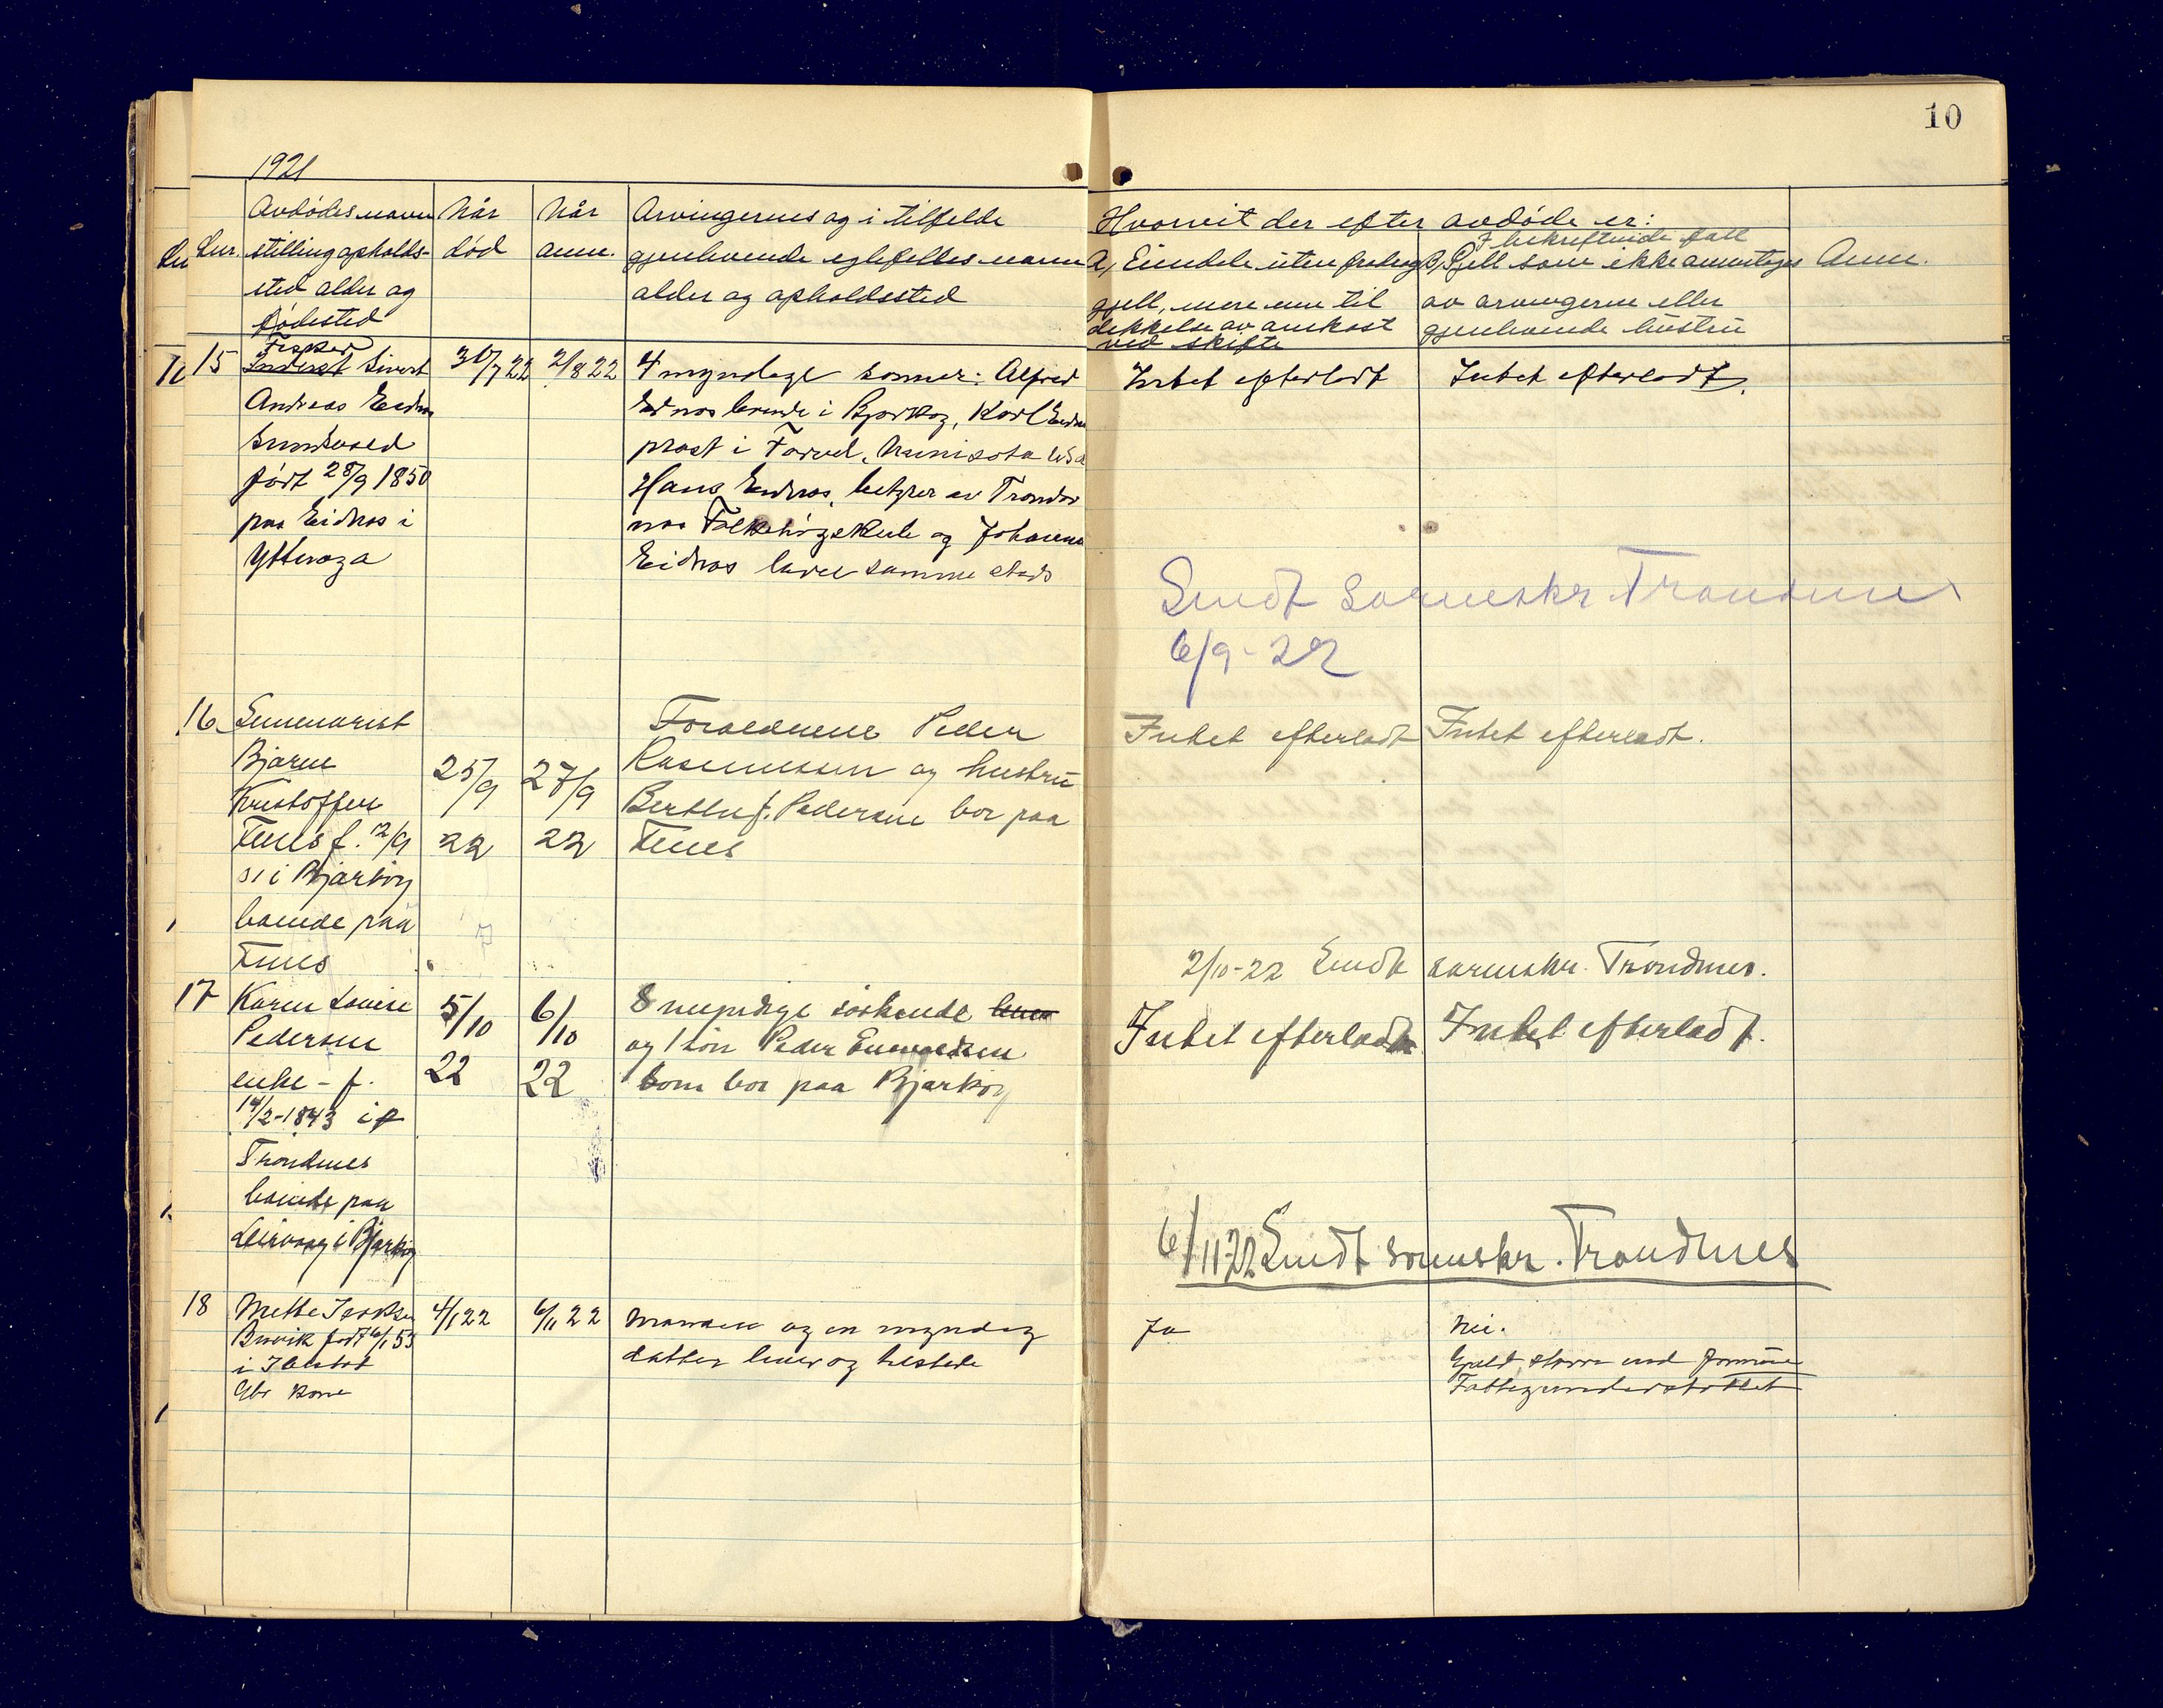 10
1921
Lnr.
Avdødes navn
stilling opholds-
sted alder og
fødested
Når
død
Når
anm.
Arvingernes og i tilfelde
gjenlevende egtefelles navn
alder og opholdssted
Hvorvit der efter avdøde er:
A, Eiendele uten fradrag
gjell, mere enn til
dekkelse av omkost
ved skifte
I bekreftende fall
B, Gjell som ikke overtages
av arvingerne eller
gjenlevende hustru
Anm.
15
Fisker
Inderst Sivert
Andreas Eidnes
født 28/9 1850
paa Eidnes i
Ytterøya
30/7 22
2/8 22
4 myndige sønner: Alfred
Eidnes boende i Bjarkøy, Karl Eidnes
prost i Minisota USA
Hans Eidnes, bestyrer av Tronde
nes Folkehøgskule og Johannes
Eidnes lærer samme steds
Intet efterladt
Intet efterladt.
Sendt sorenskr. Trondenes
6/9-22
16
Seminarist
Bjarne
Kristoffer
Fenes f. 12/9
01 i Bjarkøy
boende paa
Fenes
25/9
22
27/9
22
Forældrene Peder
Rasmussen og hustru
Berthe f. Pedersen bor paa
Fenes
Intet efterladt
Intet efterladt.
2/10-22 Sendt sorenskr. Trondenes.
17
Karen Lovise
Pedersen
enke - f.
14/2-1843 i
Trondenes
boende paa
Leirvaag i Bjarkøy
5/10
22
6/10
22
8 myndige søskende
og 1 søn Peder Enevoldsen
som bor paa Bjarkøy
Intet efterladt
Intet efterladt.
6/11 22 Sendt sorenskr. Trondenes
18
Mette Isaksen
Brevik født 6/1 53
i Ibestad
Gbr kone
4/1 22
6/11 22
Mannen og en myndig
datter lever og tilstede
Ja
Nei.
Gjeld større end formue
Fattigunderstøttet